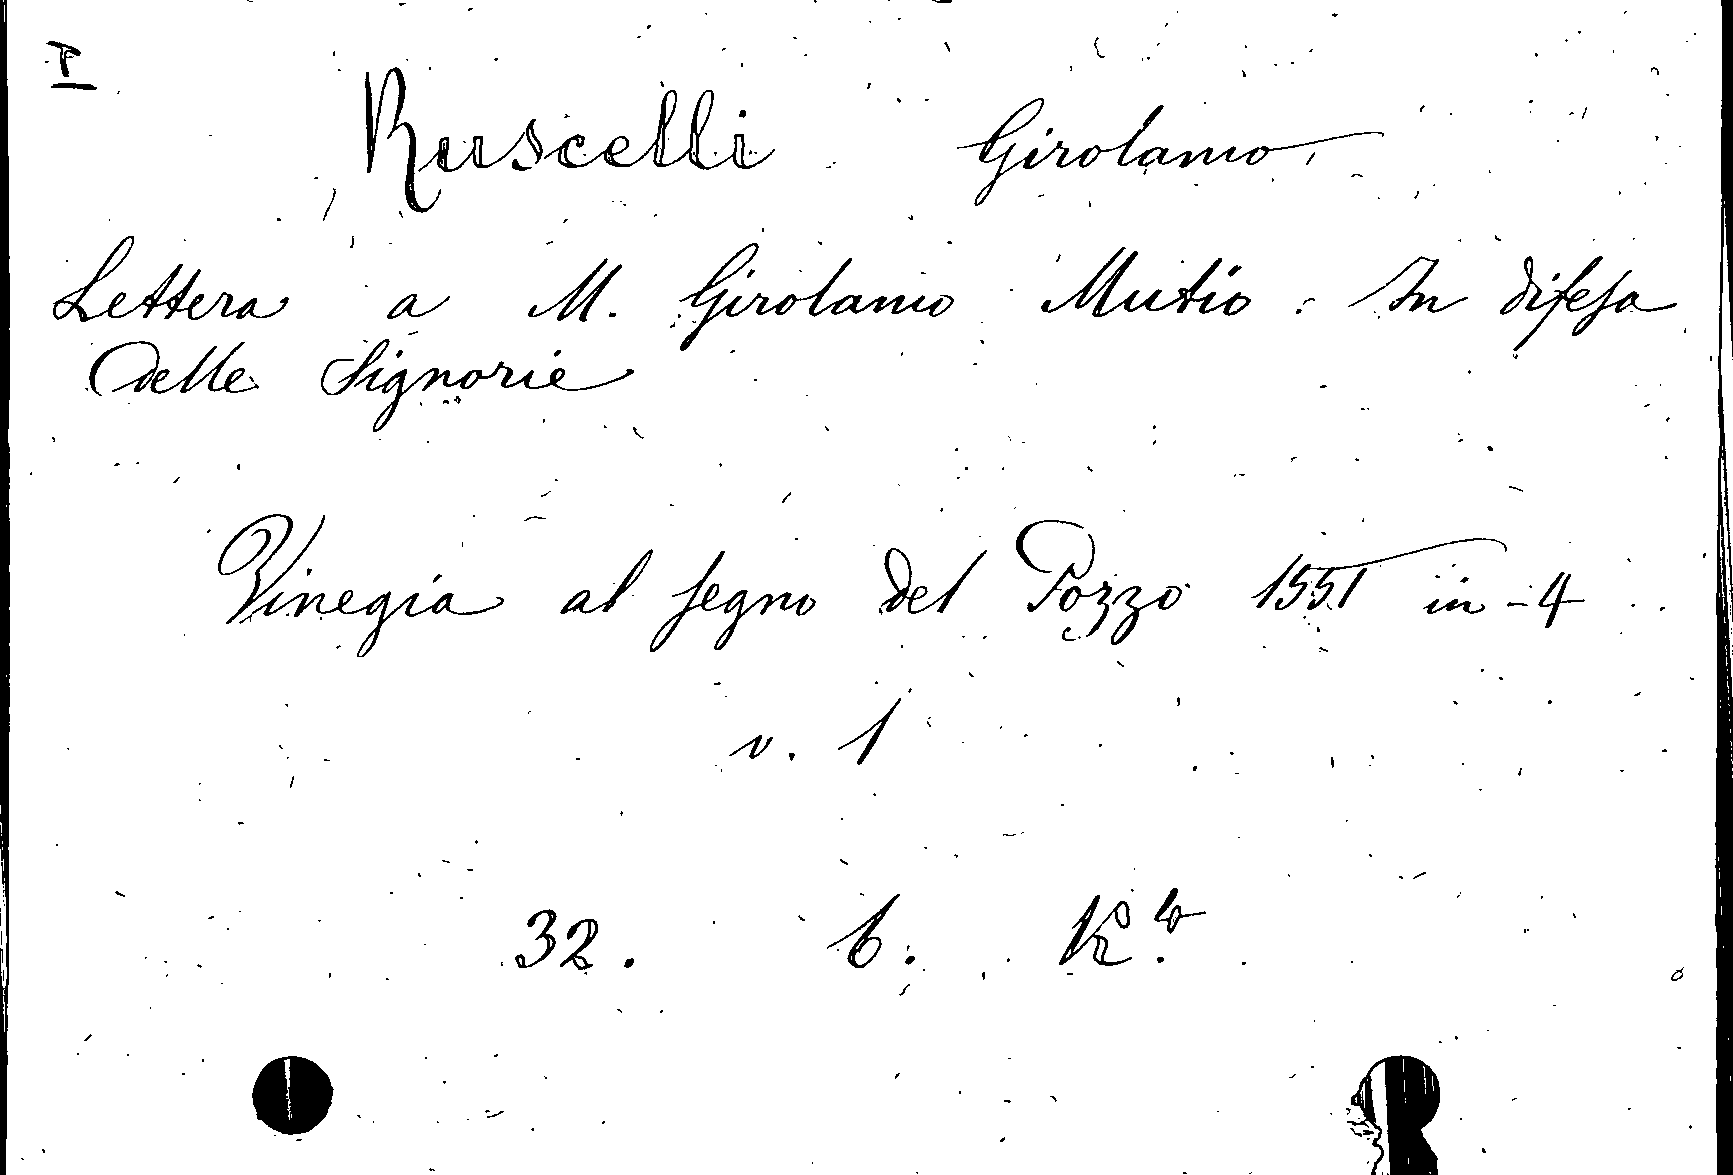 I
Ruscelli Girolamo
Lettera a M. Girolamo Mutio. In difesa
delle Signorie
Vinegia al segno del Pozzo 1551 in-4
v. 1
32. b. K.